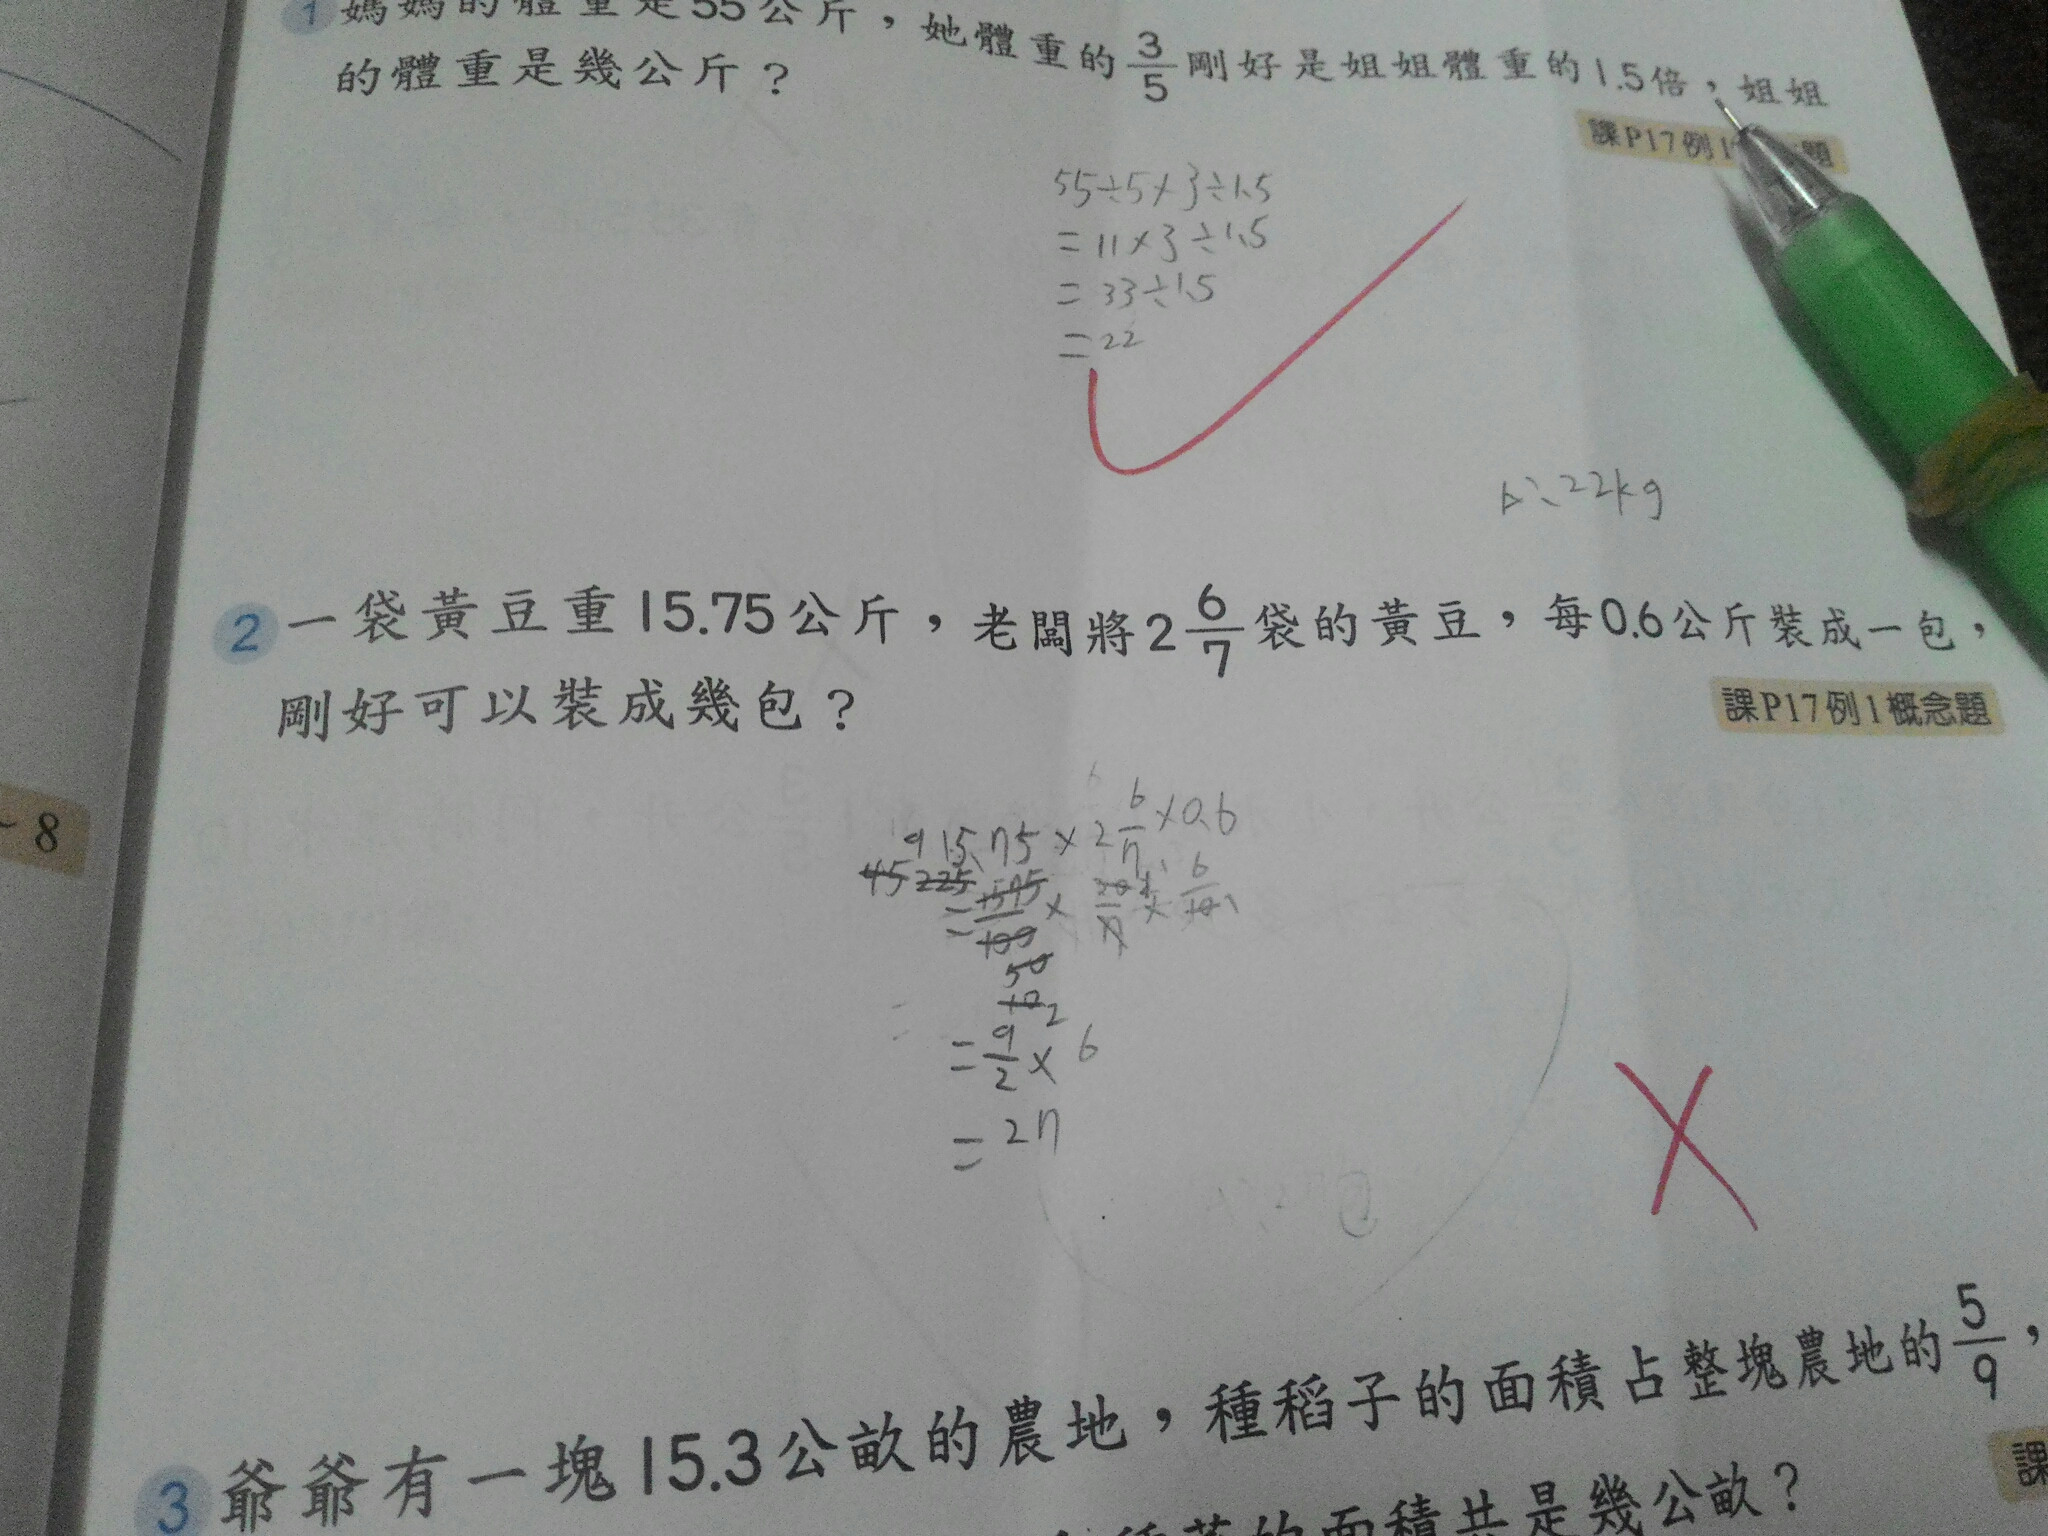 1 媽媽的體重是55公斤，她體重的3/5剛好是姐姐體重的1.5倍，姐姐
的體重是幾公斤？
課P17例1 題
55÷5×3÷1.5
=11×3÷1.5
=33÷1.5
=22
A:22kg
2 一袋黃豆重15.75公斤，老闆將2 6/7袋的黃豆，每0.6公斤裝成一包，
剛好可以裝成幾包？
課P17例1概念題
15.75×2 6/7×0.6
=1575/100×20/7×6/10
=9/2×6
=27
~8
3 爺爺有一塊15.3公畝的農地，種稻子的面積占整塊農地的5/9，
課
的面積共是幾公畝？